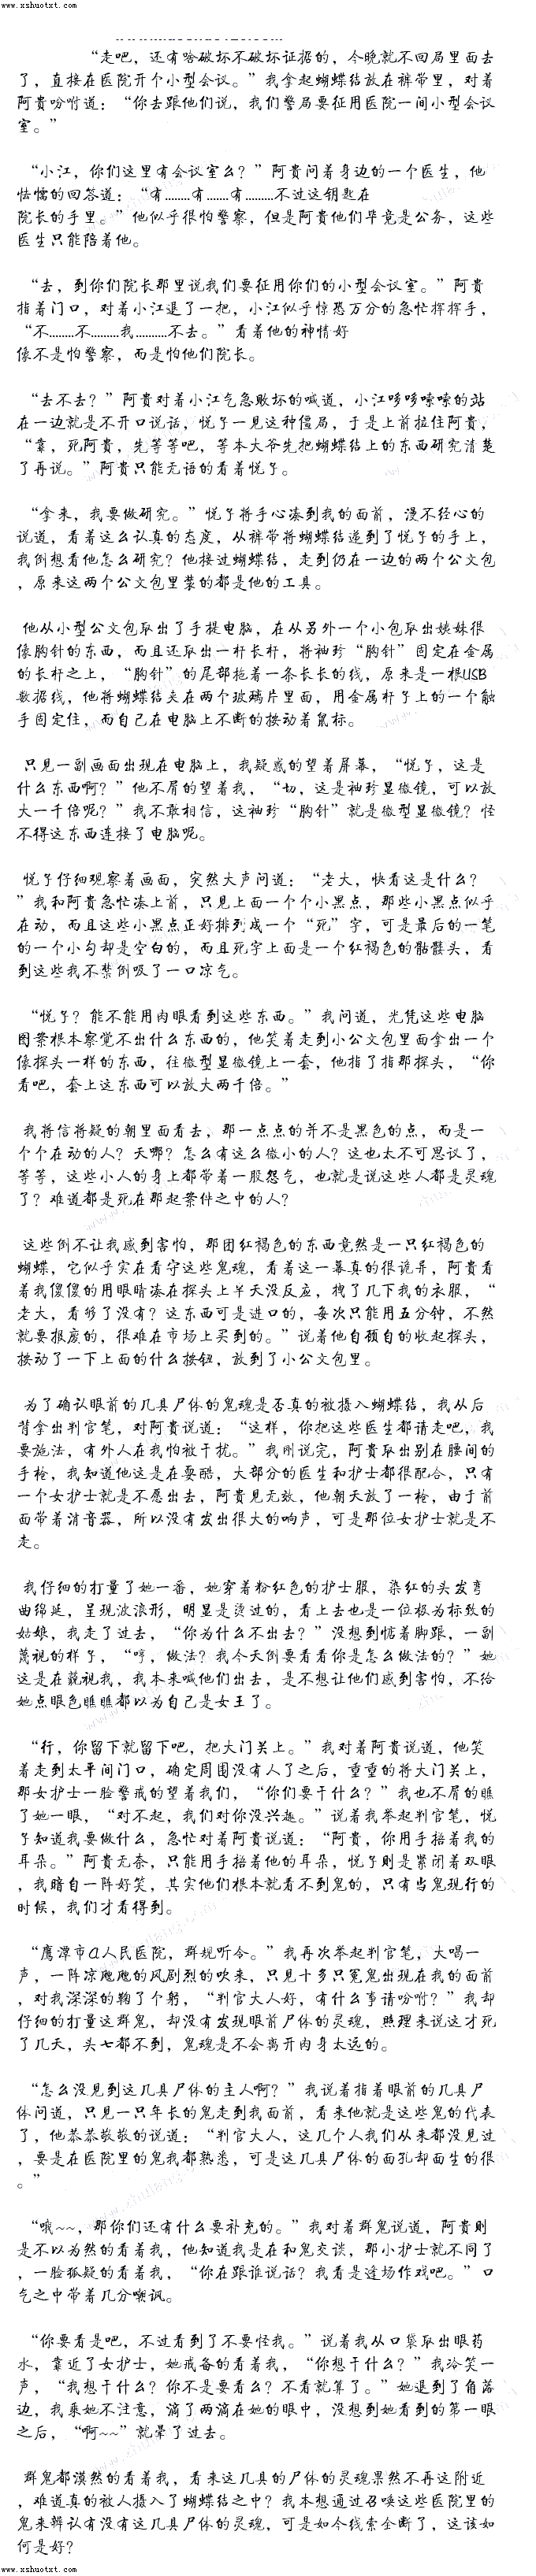 www.xshuotxt.com
“走吧，还有啥破坏不破坏证据的，今晚就不回局里面去
了，直接在医院开个小型会议。”我拿起蝴蝶结放在裤带里，对着
阿贵吩咐道：“你去跟他们说，我们警局要征用医院一间小型会议
室。”
“小江，你们这里有会议室么？”阿贵问着身边的一个医生，他
怯懦的回答道：“有........有.......有.........不过这钥匙在
院长的手里。”他似乎很怕警察，但是阿贵他们毕竟是公务，这些
医生只能陪着他。
“去，到你们院长那里说我们要征用你们的小型会议室。”阿贵
指着门口，对着小江退了一把，小江似乎惊恐万分的急忙挥挥手，
“不........不........我..........不去。”看着他的神情好
像不是怕警察，而是怕他们院长。
“去不去？”阿贵对着小江气急败坏的喊道，小江哆哆嗦嗦的站
在一边就是不开口说话，悦子一见这种僵局，于是上前拉住阿贵，
“靠，死阿贵，先等等吧，等本大爷先把蝴蝶结上的东西研究清楚
了再说。”阿贵只能无语的看着悦子。
“拿来，我要做研究。”悦子将手心凑到我的面前，漫不经心的
说道，看着这么认真的态度，从裤带将蝴蝶结递到了悦子的手上，
我倒想看他怎么研究？他接过蝴蝶结，走到仍在一边的两个公文包
，原来这两个公文包里装的都是他的工具。
他从小型公文包取出了手提电脑，在从另外一个小包取出姨妹很
像胸针的东西，而且还取出一杆长杆，将袖珍“胸针”固定在金属
的长杆之上，“胸针”的尾部拖着一条长长的线，原来是一根USB
数据线，他将蝴蝶结夹在两个玻璃片里面，用金属杆子上的一个触
手固定住，而自己在电脑上不断的按动着鼠标。
只见一副画面出现在电脑上，我疑惑的望着屏幕，“悦子，这是
什么东西啊？”他不屑的望着我，“切，这是袖珍显微镜，可以放
大一千倍呢？”我不敢相信，这袖珍“胸针”就是微型显微镜？怪
不得这东西连接了电脑呢。
悦子仔细观察着画面，突然大声问道：“老大，快看这是什么？
”我和阿贵急忙凑上前，只见上面一个个小黑点，那些小黑点似乎
在动，而且这些小黑点正好排列成一个“死”字，可是最后的一笔
的一个小勾却是空白的，而且死字上面是一个红褐色的骷髅头，看
到这些我不禁倒吸了一口凉气。
“悦子？能不能用肉眼看到这些东西。”我问道，光凭这些电脑
图案根本察觉不出什么东西的，他笑着走到小公文包里面拿出一个
像探头一样的东西，往微型显微镜上一套，他指了指那探头，“你
看吧，套上这东西可以放大两千倍。”
我将信将疑的朝里面看去，那一点点的并不是黑色的点，而是一
个个在动的人？天哪？怎么有这么微小的人？这也太不可思议了，
等等，这些小人的身上都带着一股怨气，也就是说这些人都是灵魂
了？难道都是死在那起案件之中的人？
这些倒不让我感到害怕，那团红褐色的东西竟然是一只红褐色的
蝴蝶，它似乎实在看守这些鬼魂，看着这一幕真的很诡异，阿贵看
着我傻傻的用眼睛凑在探头上半天没反应，拽了几下我的衣服，“
老大，看够了没有？这东西可是进口的，每次只能用五分钟，不然
就要报废的，很难在市场上买到的。”说着他自顾自的收起探头，
按动了一下上面的什么按钮，放到了小公文包里。
为了确认眼前的几具尸体的鬼魂是否真的被摄入蝴蝶结，我从后
背拿出判官笔，对阿贵说道：“这样，你把这些医生都请走吧，我
要施法，有外人在我怕被干扰。”我刚说完，阿贵取出别在腰间的
手枪，我知道他这是在耍酷，大部分的医生和护士都很配合，只有
一个女护士就是不愿出去，阿贵见无效，他朝天放了一枪，由于前
面带着消音器，所以没有发出很大的响声，可是那位女护士就是不
走。
我仔细的打量了她一番，她穿着粉红色的护士服，染红的头发弯
曲绵延，呈现波浪形，明显是烫过的，看上去也是一位极为标致的
姑娘，我走了过去，“你为什么不出去？”没想到惦着脚跟，一副
蔑视的样子，“哼，做法？我今天倒要看看你是怎么做法的？”她
这是在藐视我，我本来喊他们出去，是不想让他们感到害怕，不给
她点眼色瞧瞧都以为自己是女王了。
“行，你留下就留下吧，把大门关上。”我对着阿贵说道，他笑
着走到太平间门口，确定周围没有人了之后，重重的将大门关上，
那女护士一脸警戒的望着我们，“你们要干什么？”我也不屑的瞧
了她一眼，“对不起，我们对你没兴趣。”说着我举起判官笔，悦
子知道我要做什么，急忙对着阿贵说道：“阿贵，你用手捂着我的
耳朵。”阿贵无奈，只能用手捂着他的耳朵，悦子则是紧闭着双眼
，我暗自一阵好笑，其实他们根本就看不到鬼的，只有当鬼现行的
时候，我们才看得到。
“鹰潭市a人民医院，群规听令。”我再次举起判官笔，大喝一
声，一阵凉飕飕的风剧烈的吹来，只见十多只冤鬼出现在我的面前
，对我深深的鞠了个躬，“判官大人好，有什么事请吩咐？”我却
仔细的打量这群鬼，却没有发现眼前尸体的灵魂，照理来说这才死
了几天，头七都不到，鬼魂是不会离开肉身太远的。
“怎么没见到这几具尸体的主人啊？”我说着指着眼前的几具尸
体问道，只见一只年长的鬼走到我面前，看来他就是这些鬼的代表
了，他恭恭敬敬的说道：“判官大人，这几个人我们从来都没见过
，要是在医院里的鬼我都熟悉，可是这几具尸体的面孔却面生的很
。”
“哦~~，那你们还有什么要补充的。”我对着群鬼说道，阿贵则
是不以为然的看着我，他知道我是在和鬼交谈，那小护士就不同了
，一脸狐疑的看着我，“你在跟谁说话？我看是逢场作戏吧。”口
气之中带着几分嘲讽。
“你要看是吧，不过看到了不要怪我。”说着我从口袋取出眼药
水，靠近了女护士，她戒备的看着我，“你想干什么？”我冷笑一
声，“我想干什么？你不是要看么？不看就算了。”她退到了角落
边，我乘她不注意，滴了两滴在她的眼中，没想到她看到的第一眼
之后，“啊~~”就晕了过去。
群鬼都漠然的看着我，看来这几具的尸体的灵魂果然不再这附近
，难道真的被人摄入了蝴蝶结之中？我本想通过召唤这些医院里的
鬼来辨认有没有这几具尸体的灵魂，可是如今线索全断了，这该如
何是好？
www.xshuotxt.com